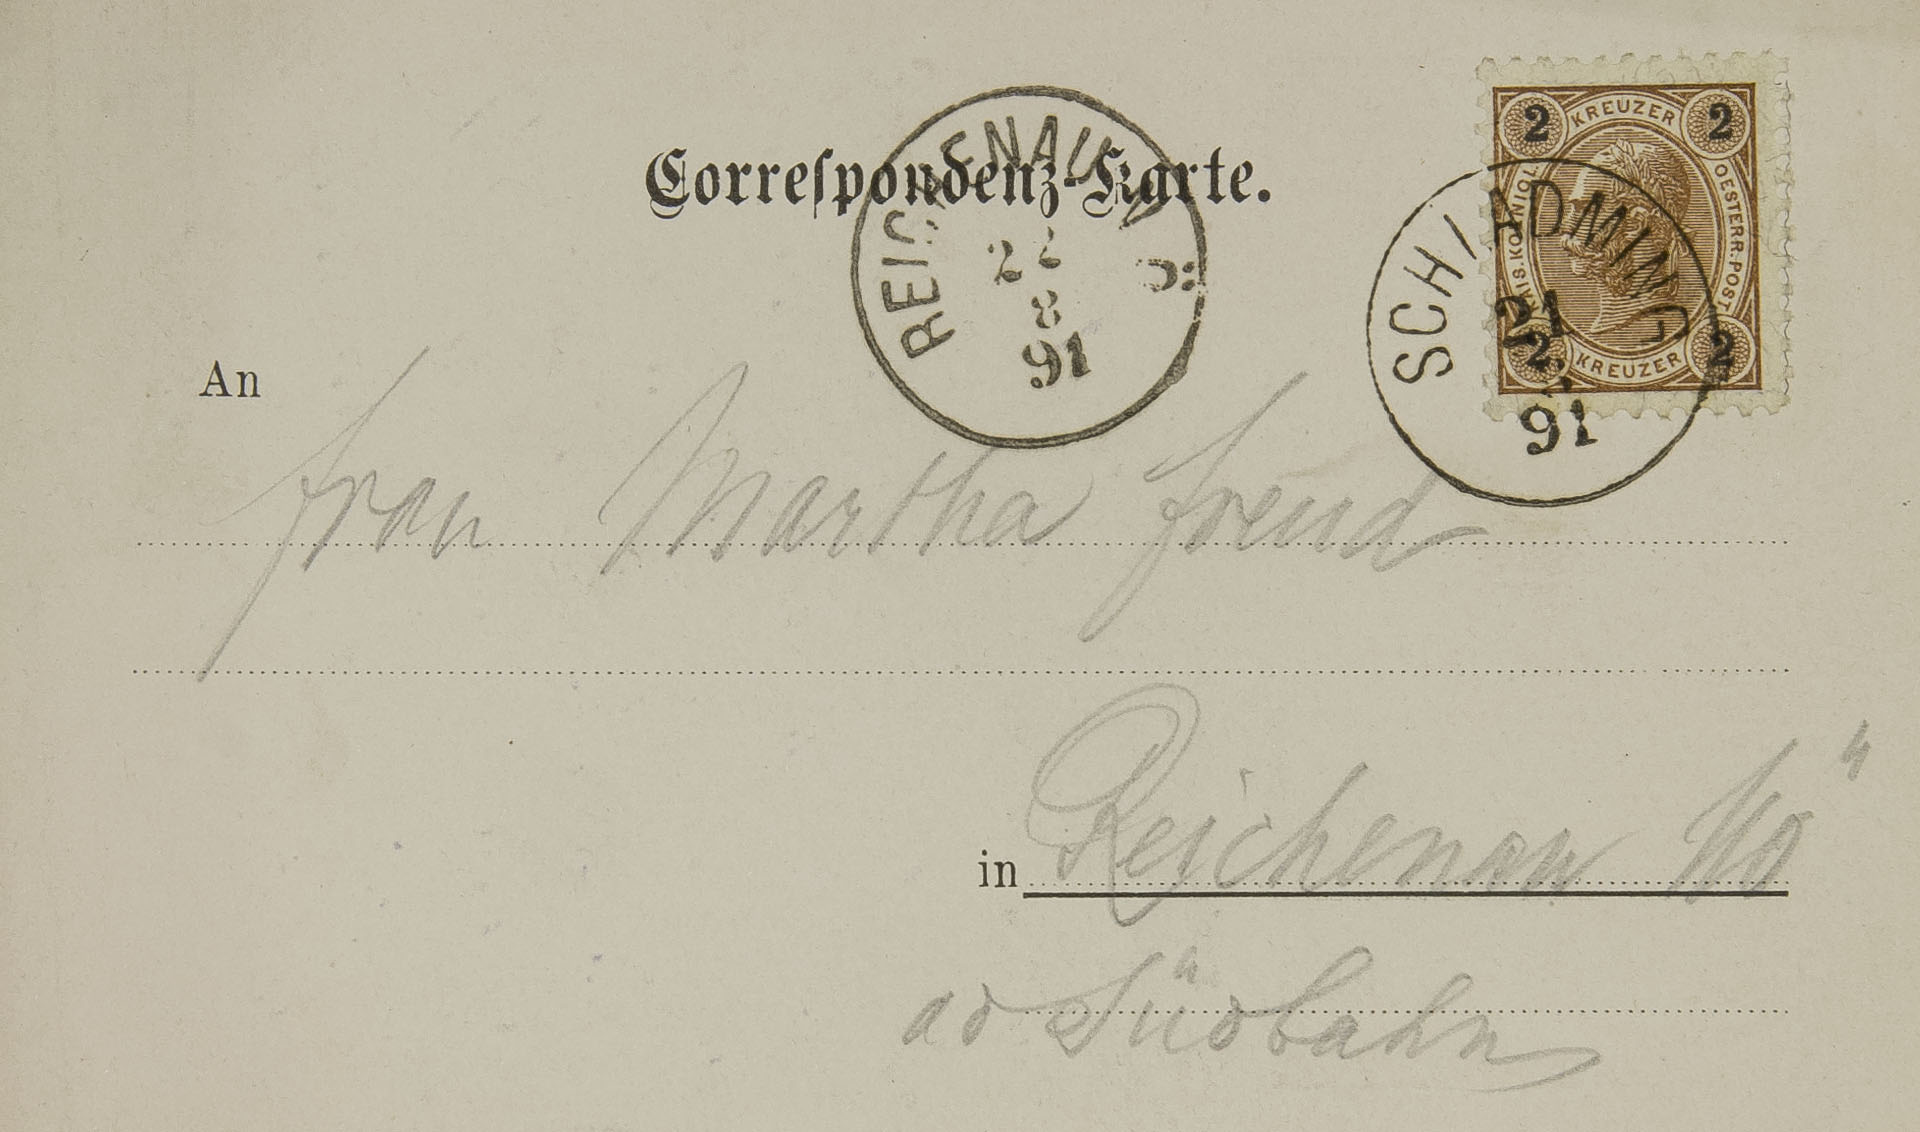 Correspondenz-Karte.
REICHENAU N. Ö:
22
8
91
2 KREUZER 2
KAIS. KÖNIGL. OESTERR. POST
2 KREUZER 2
SCHLADMING
21
91
An
Frau Martha Freud
in Reichenau NÖ
ad Südbahn